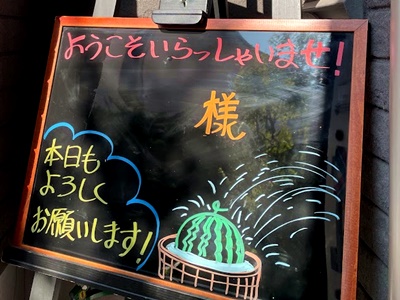 ようこそいらっしゃいませ!
様
本日も
よろしく
お願いします!